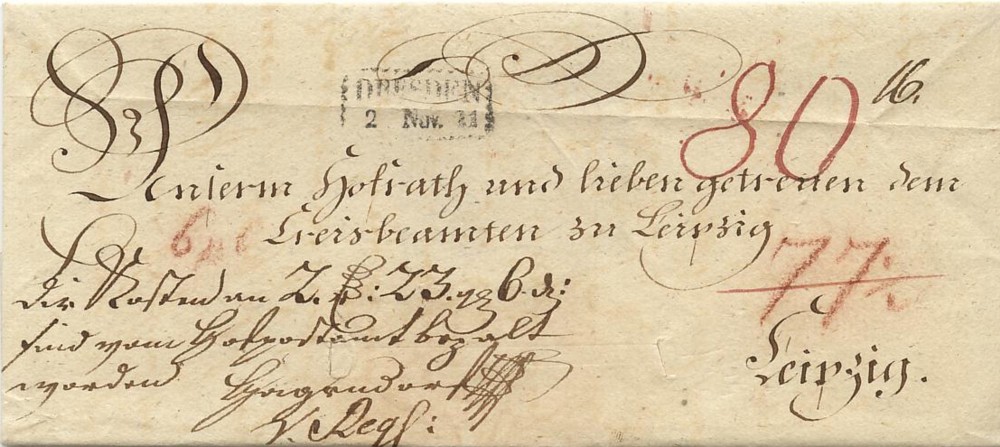 DRESDEN
2 Nov. 31
80
16.
Unserm Hofrath und lieben getreuen dem
Creisbeamten zu Leipzig
6
77½
Die Kosten an 2. : 23. gg 6. d:
sind vom Hofpostamt bezalt
worden
Leipzig.